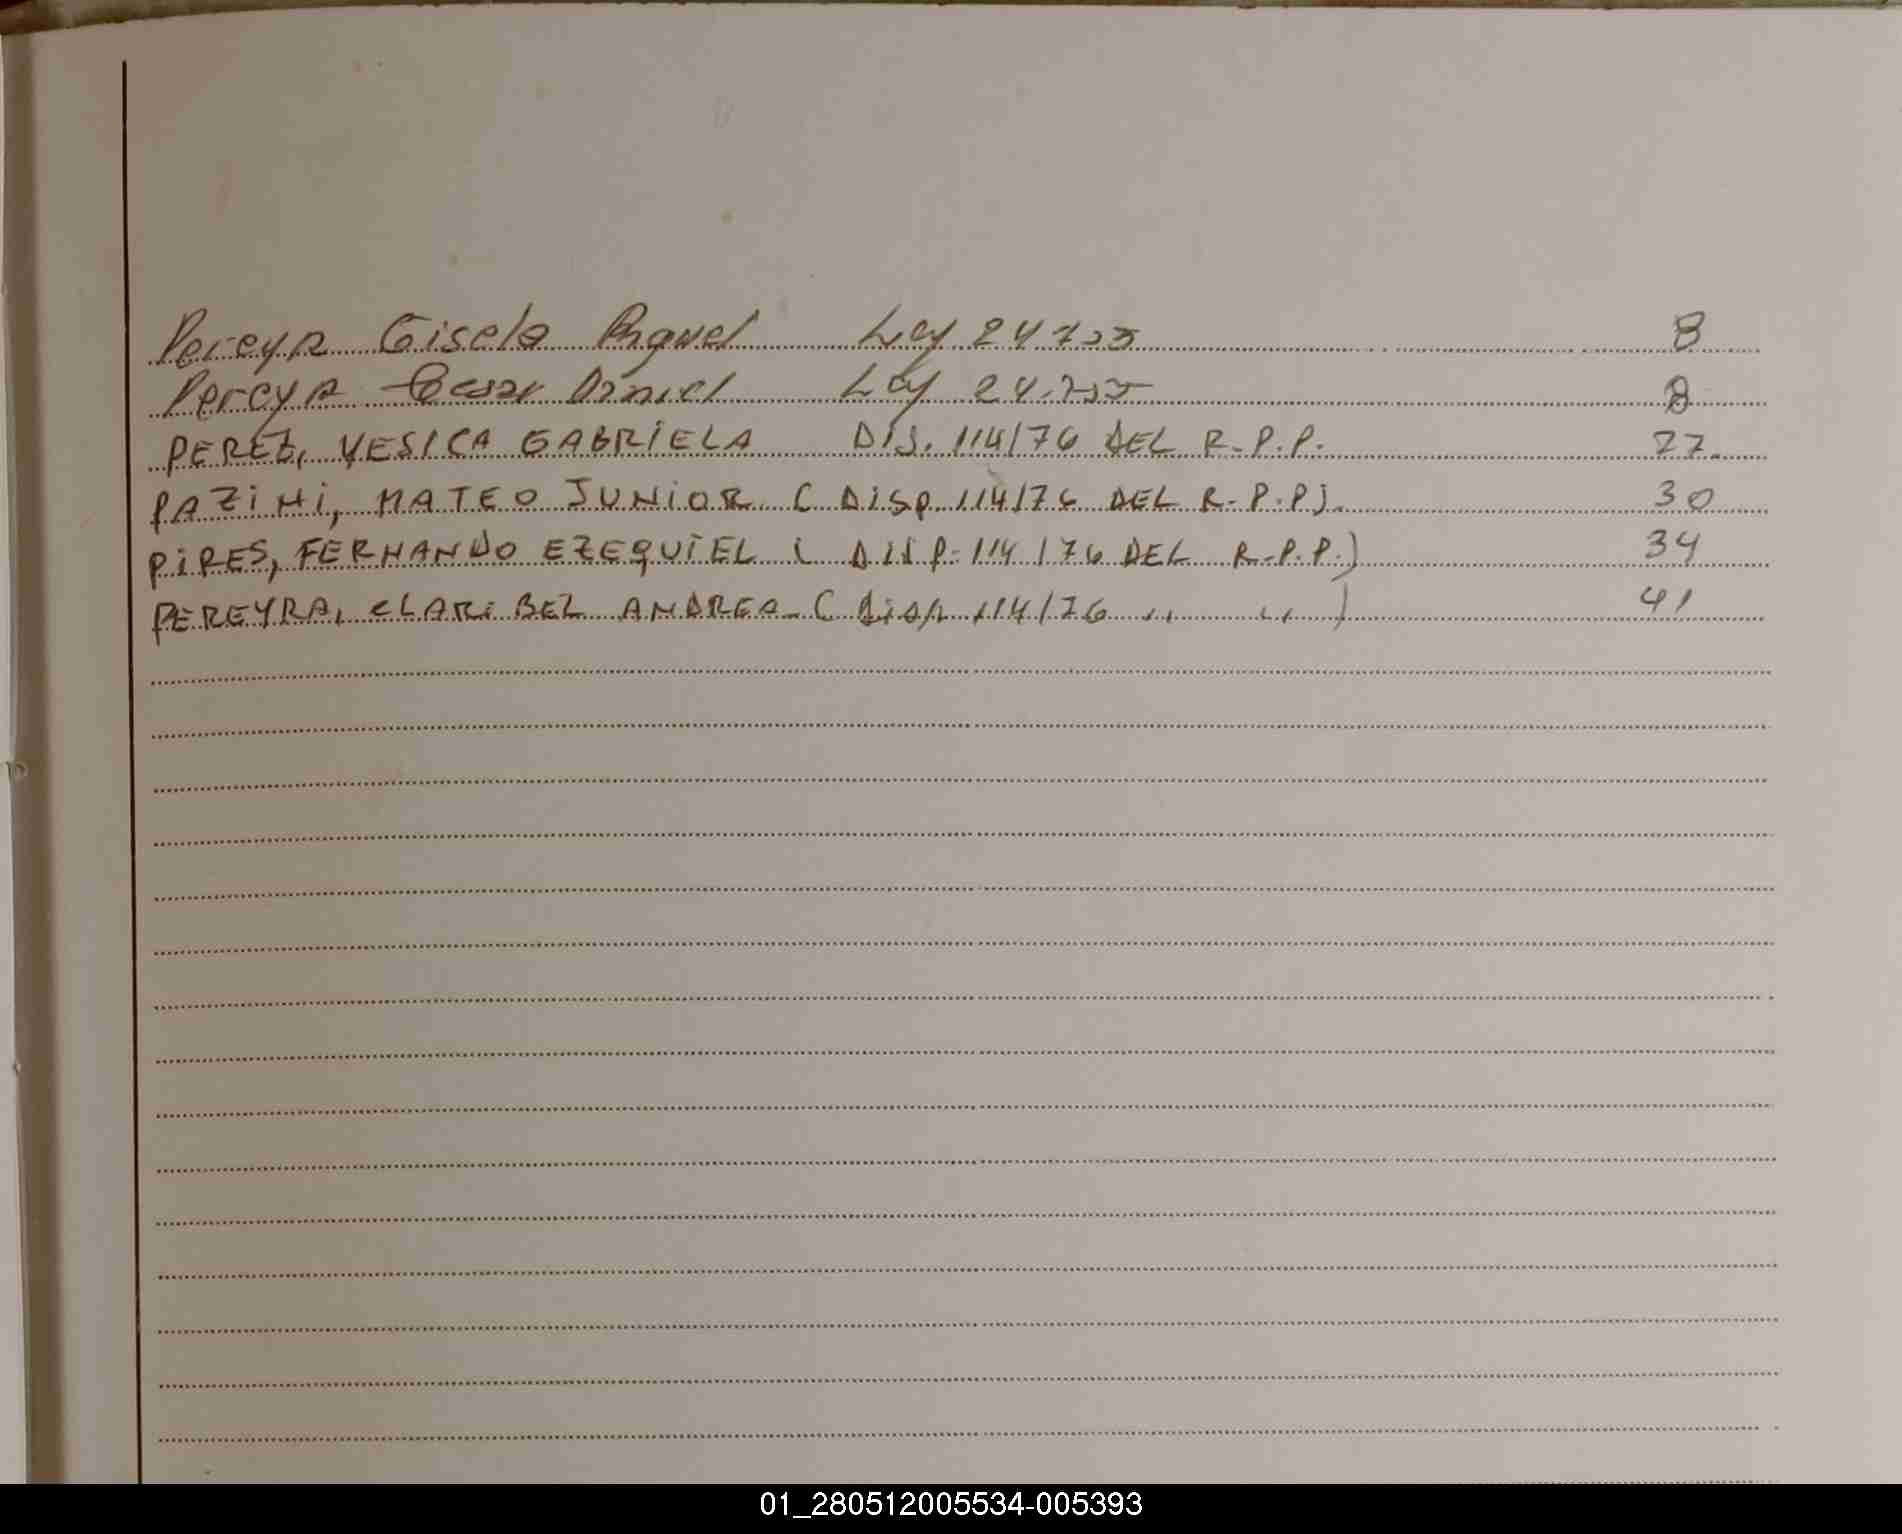 Pereyra Gisela Raquel Ley 24755 8
Pereyra Cesar Daniel Ley 24.755 8
PEREZ, YESICA GABRIELA DIS. 114/76 DEL R.P.P. 27
PAZINI, MATEO JUNIOR ( DISP. 114/76 DEL R.P.P). 30
PIRES, FERNANDO EZEQUIEL ( DISP. 114/76 DEL R.P.P.) 34
PEREYRA, CLARIBEL ANDREA_ ( Disp. 114/76 ,, ,, ) 41
01_280512005534-005393